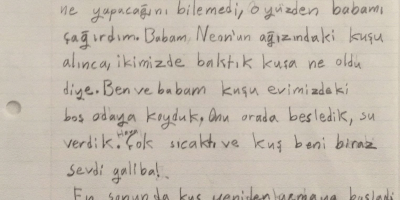 ne yapacağını bilemedi, o yüzden babamı
çağırdım. Babam Neon'un ağızındaki kuşu
alınca, ikimizde baktık kuşa ne oldu
diye. Ben ve babam kuşu evimizdeki
boş odaya koyduk. Onu orada besledik, su
verdik. Hava Çok sıcaktı ve kuş beni biraz
sevdi galiba!
En sonunda kuş yeniden uçmaya başladı